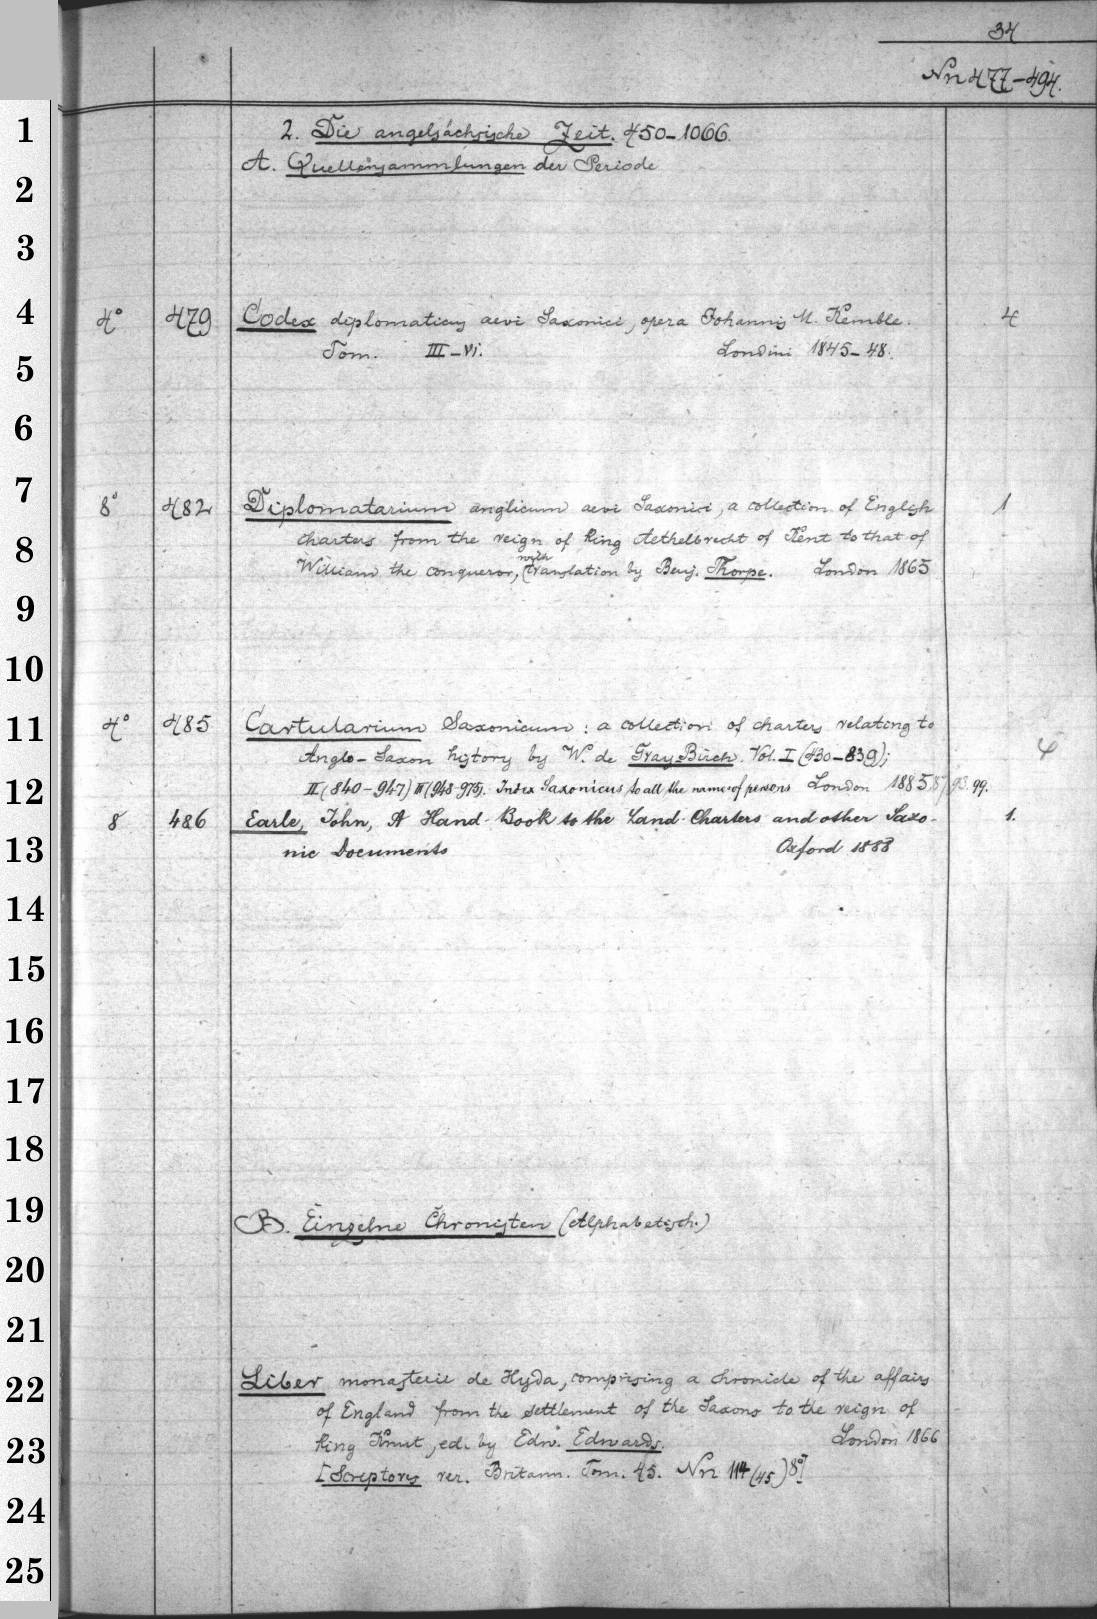 34
Nr 477-494.
1 2. Die angelsächsische Zeit. 450-1066.
A. Quellensammlungen der Periode
2
3
4 4° 479 Codex diplomaticus aevi Saxonici, opera Johannis M. Kemble. 4
Tom. III-VI. Londini 1845-48.
5
6
7 8° 482 Diplomatarium anglicum aevi Saxonici, a collection of English 1
8 charters from the reign of King Aethelbrecht of Kent to that of
William the conqueror, with translation by Benj. Thorpe. London 1865
9
10
11 4° 485 Cartularium Saxonicum: a collection of charters relating to
Anglo-Saxon history by W. de Gray Birch. Vol. I (430-839);
12 II (840-947) III (948-975). Index Saxonicus to all the names of persons London 1885.87.93.99.
8 486 Earle, John, A Hand-Book to the Land-Charters and other Saxo- 1.
13 nic Documents Oxford 1888
14
15
16
17
18
19 B. Einzelne Chronisten (Alphabetisch.)
20
21
22 Liber monasterii de Hyda, comprising a chronicle of the affairs
of England from the settlement of the Saxons to the reign of
23 King Knut, ed. by Edw. Edwards. London 1866
[Scriptores rer. Britann. Tom. 45. Nr 114 (45) 8°]
24
25